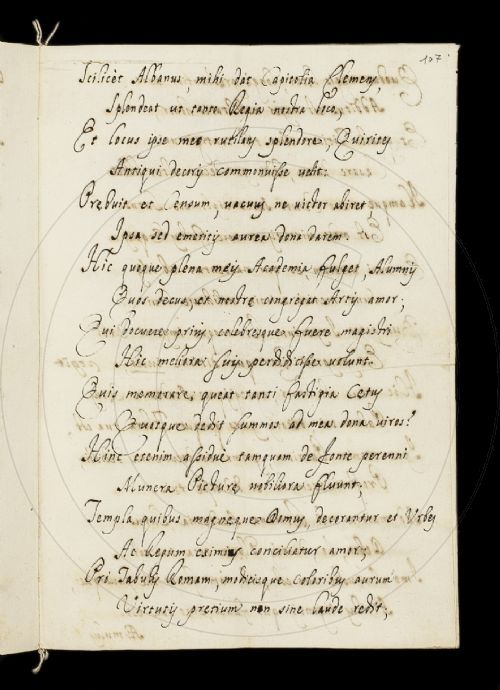 107
Scilicèt Albanus, mihi dat Capitolia Clemens,
Splendeat ut tanto Regia nostra loco,
Et locus ipse meo rutilans splendore Quirites
Antiqui decoris commonuisse velit:
Prębuit et Censum, vacuus ne victor abiret,
Ipsa sed emeritis aurea dona darem.
Hic quoque plena meis Academia fulget Alumnis
Quos decus, et nostrę congregat Artis amor;
Qui docuere prius, celebresque fuere magistri
Hic meliora suis perdidicisse volunt.
Quis memorare queat tanti fastigia Cœtus
Quosque dedit summos ad mea dona viros?
Hinc etenim assidue tamquam de fonte perenni
Munera Picturę nobiliora fluunt;
Templa, quibus magnęque Domus, decorantur et Urbes
Ac Regum eximius conciliatur amor;
Pro Tabulis Romam, modicisque coloribus aurum
Virtutis pretium non sine laude redit;